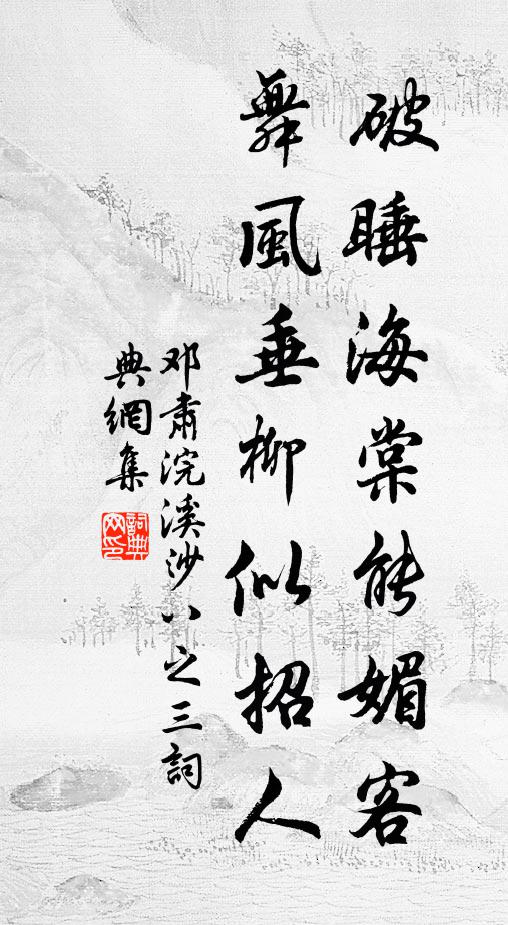 破睡海棠能媚客
舞風垂柳似招人
邓肅浣溪沙八之三詞
典網集
詞典網印